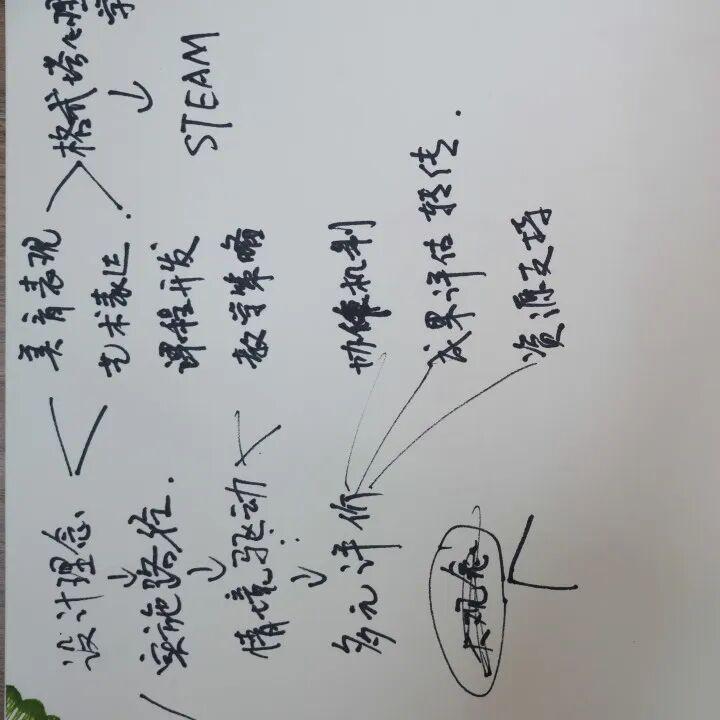 设计理念
实施路径.
情境驱动
多元评价
美育表现
艺术表达.
课程开发
教学策略
协作机制
成果评估 转传.
资源支持
格式塔心理学
STEAM